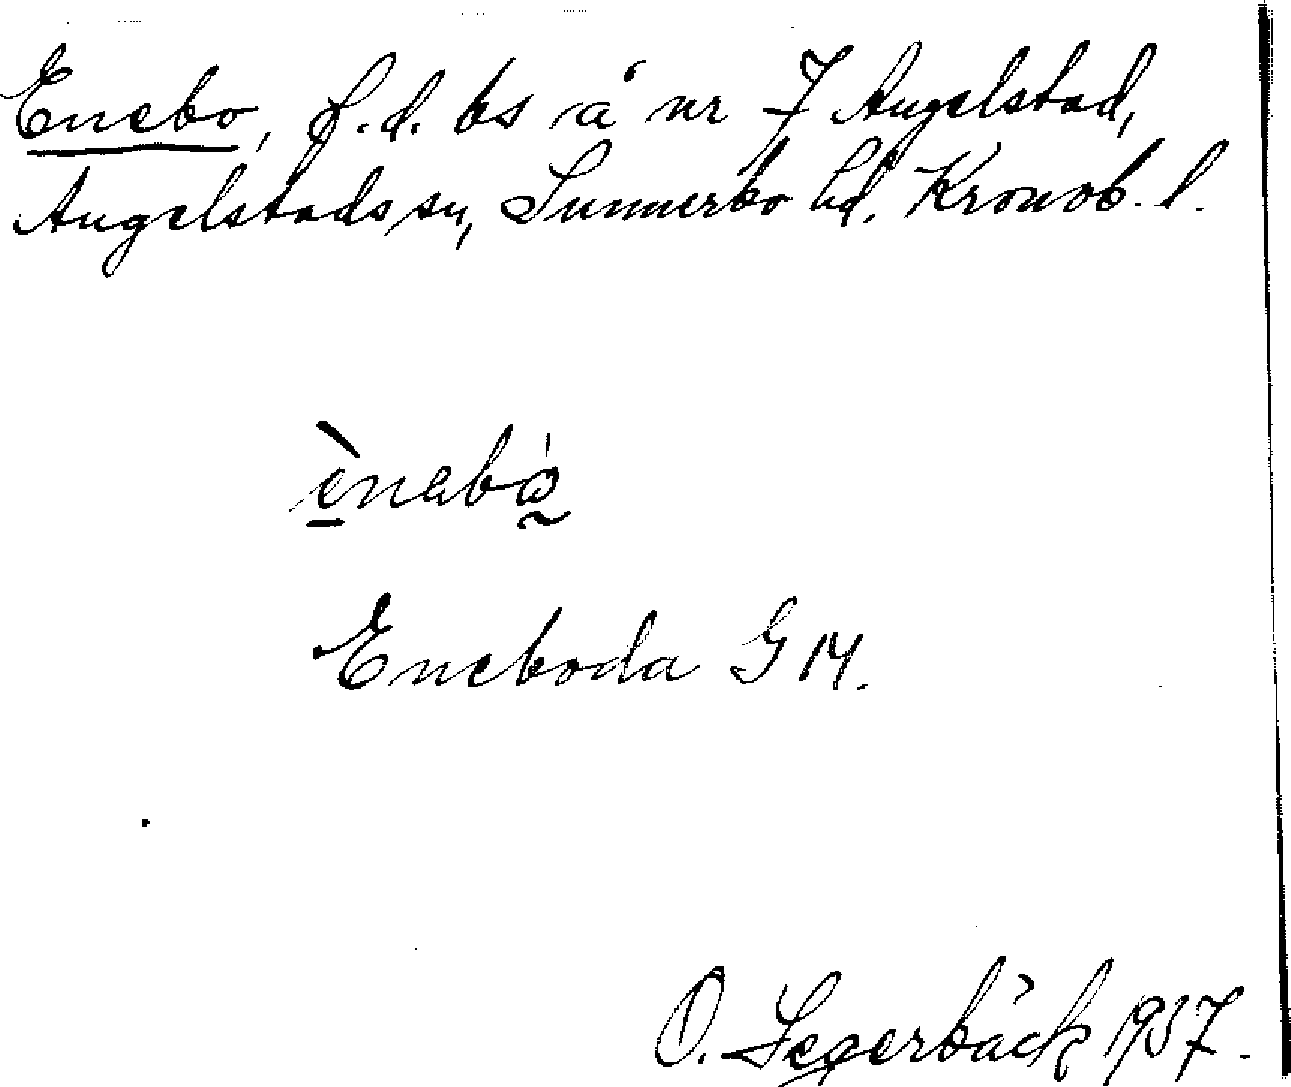 Enebo, f.d. bs å nr 7 Angelstad,
Angelstads sn, Sunnerbo hd. Kronob. l.
ènabò
Eneboda GM.
O. Segerbäck 1937.